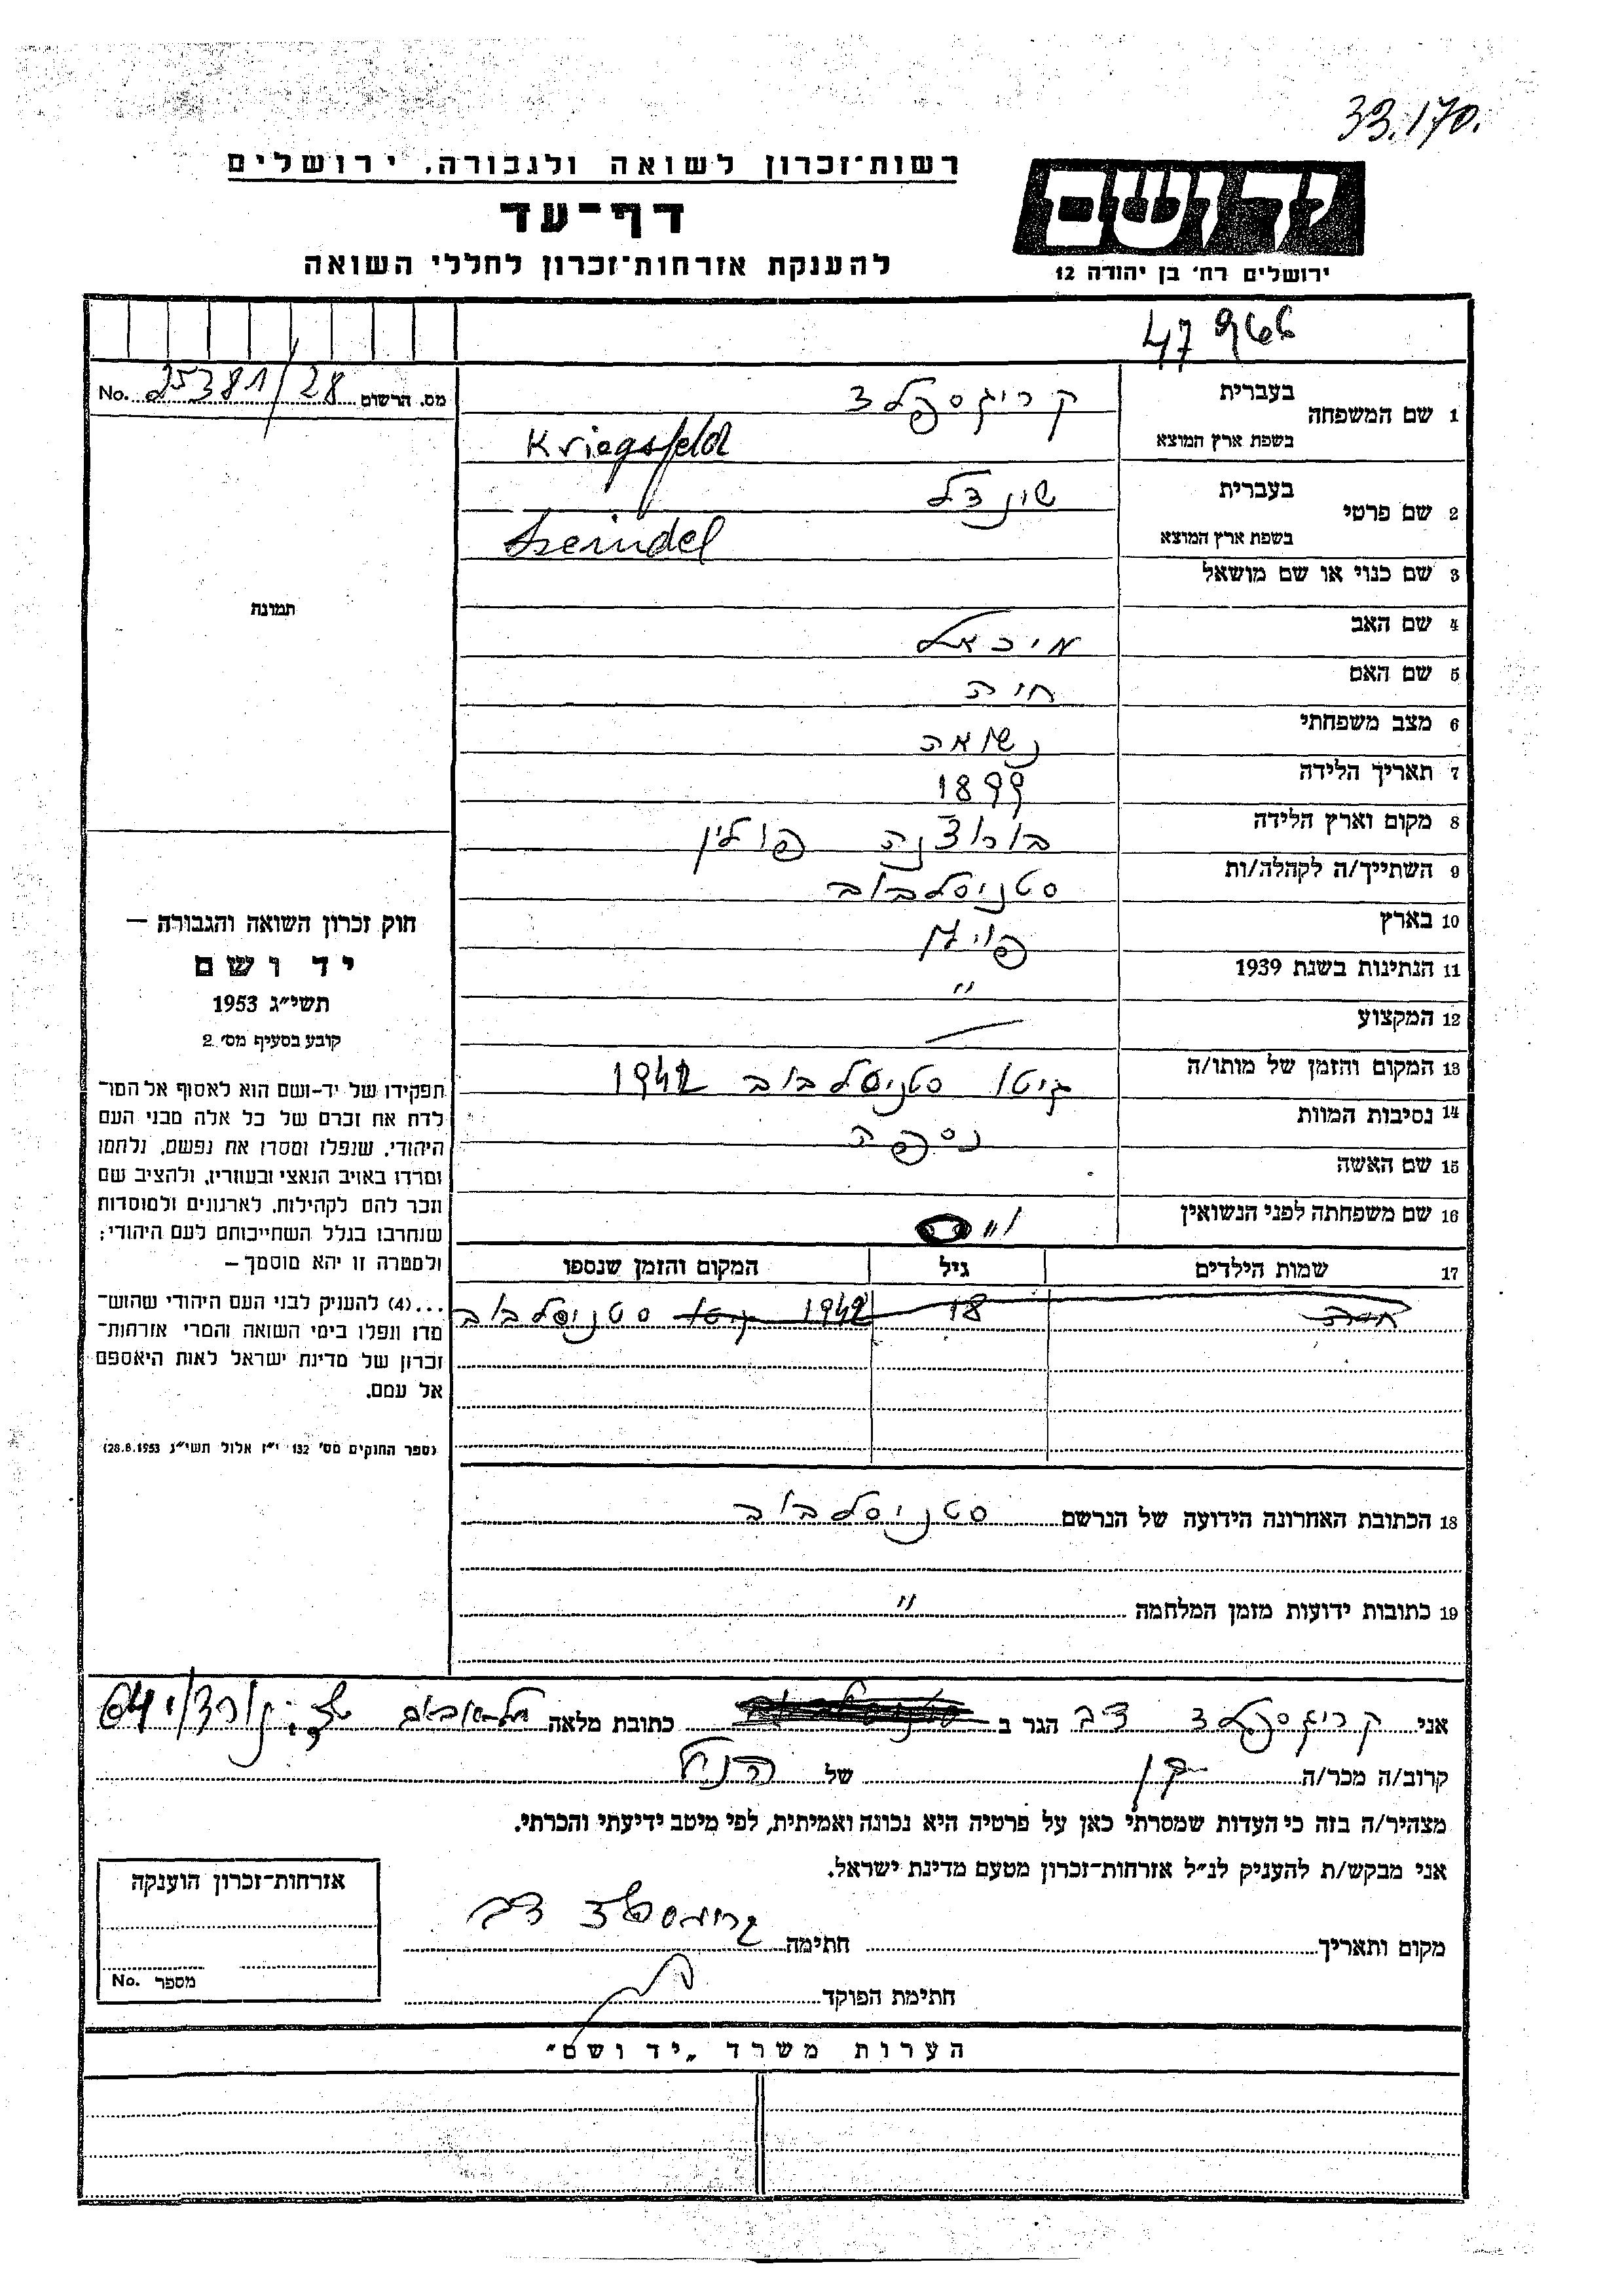 33.170.
רשות־זכרון לשואה ולגבורה, ירושלים
דף־עד
להענקת אזרחות־זכרון לחללי השואה
יד ושם
ירושלים רח׳ בן יהודה 12
47966
מס. הרשום 25381/28 No.
1 שם המשפחה
בעברית קריגספלד
בשפת ארץ המוצא Kriegsfeld
2 שם פרטי
בעברית שינדל
בשפת ארץ המוצא Szeindel
3 שם כנוי או שם מושאל
תמונה
4 שם האב מיכאל
5 שם האם חיה
6 מצב משפחתי נשואה
7 תאריך הלידה 1899
8 מקום וארץ הלידה פולין
9 השתייך/ה לקהלה/ות סטניסלבוב
10 בארץ פולין
11 הנתינות בשנת 1939 "
12 המקצוע —
13 המקום והזמן של מותו/ה גיטו סטניסלבוב 1942
14 נסיבות המוות נספה
15 שם האשה
16 שם משפחתה לפני הנשואין
17 שמות הילדים גיל המקום והזמן שנספו
חיה 18 1942 גיטו סטניסלבוב
18 הכתובת האחרונה הידועה של הנרשם סטניסלבוב
19 כתובות ידועות מזמן המלחמה "
חוק זכרון השואה והגבורה —
יד ושם
תשי״ג 1953
קובע בסעיף מס׳ 2
תפקידו של יד-ושם הוא לאסוף אל המו־
לדת את זכרם של כל אלה מבני העם
היהודי, שנפלו ומסרו את נפשם, נלחמו
ומרדו באויב הנאצי ובעוזריו, ולהציב שם
וזכר להם לקהילות, לארגונים ולמוסדות
שנחרבו בגלל השתייכותם לעם היהודי;
ולמטרה זו יהא מוסמך —
...(4) להעניק לבני העם היהודי שהוש־
מדו ונפלו בימי השואה והמרי אזרחות־
זכרון של מדינת ישראל לאות היאספם
אל עמם.
(ספר החוקים מס׳ 132 י״ז אלול תשי״ג 28.8.1953)
אני קריגספלד דב הגר ב כתובת מלאה
קרוב/ה מכר/ה בן של הנ״ל
מצהיר/ה בזה כי העדות שמסרתי כאן על פרטיה היא נכונה ואמיתית, לפי מיטב ידיעתי והכרתי.
אני מבקש/ת להעניק לנ״ל אזרחות-זכרון מטעם מדינת ישראל.
מקום ותאריך חתימה קריגספלד דב
חתימת הפוקד
אזרחות-זכרון הוענקה
מספר No.
הערות משרד „יד ושם"